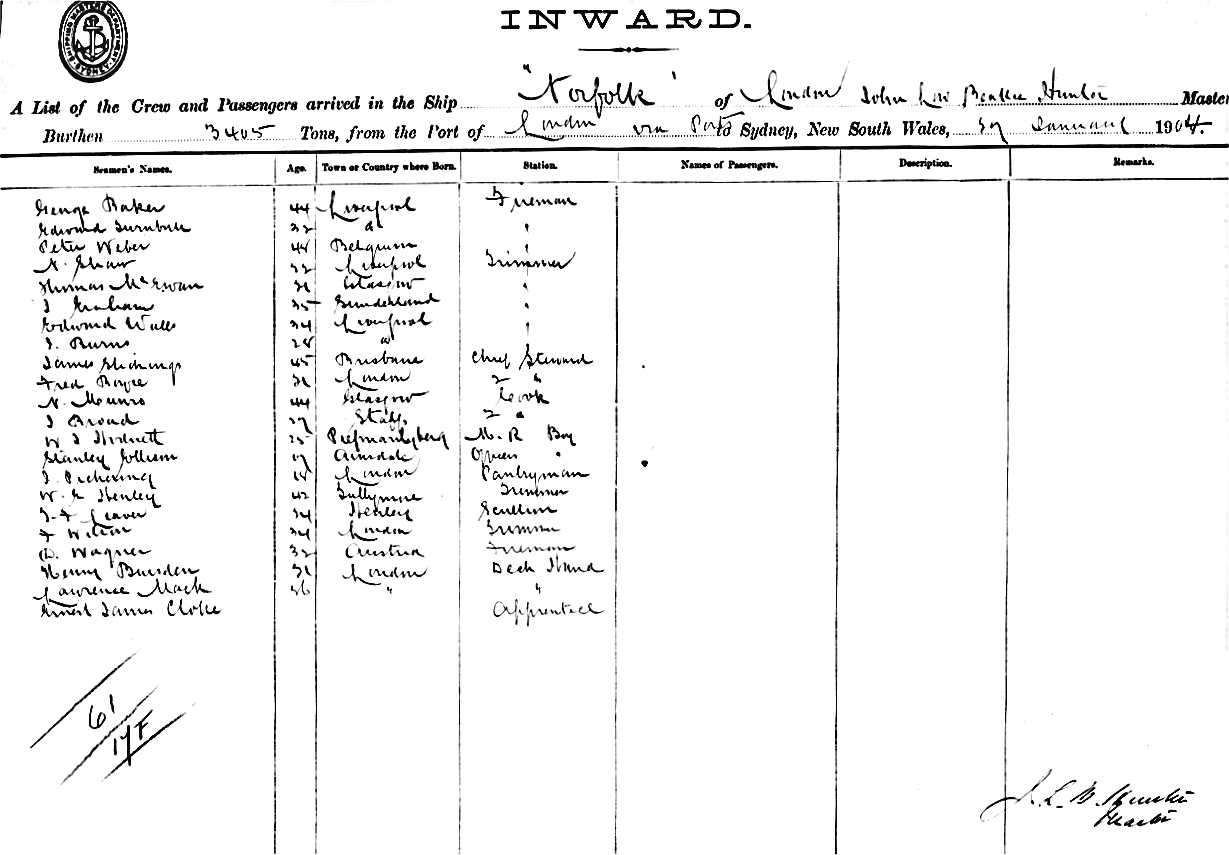 SHIPPING MASTERS DEPARTMENT SYDNEY
INWARD.
A List of the Crew and Passengers arrived in the Ship "Norfolk" of London John Hunter Master
Burthen 3405 Tons, from the Port of London via Ports to Sydney, New South Wales, January 1904.
Seamen's Names. Age. Town or Country where Born. Station. Names of Passengers. Description. Remarks.
George Baker 44 Liverpool Fireman
Edward Turnbull 32 "
Peter Weber 48 Belgium "
N. Shaw 32 Liverpool Trimmer
Thomas McEwan 31 Glasgow "
J Graham 35 Sunderland "
Edward Walls 34 Liverpool "
J. Burns 28 "
James 45 Brisbane Chief Steward
Fred Boyce 31 London 2 "
N. Munro 44 Glasgow Cook
J Broad 27 Staffs 2 "
W J Hodnett 25 M. R Boy
Stanley 17 Officers "
J. Pickering 18 London Pantryman
W. G Henley 42 Trimmer
J. F Leaver 34 Henley Scullion
F Wilson 34 London Trimmer
D. Wagner 32 Austria Fireman
Henry Bursden 31 London Deck Hand
Lawrence Mack 36 " "
Ernest James Cloke Apprentice
61
17F
J. L. B. Hunter
Master